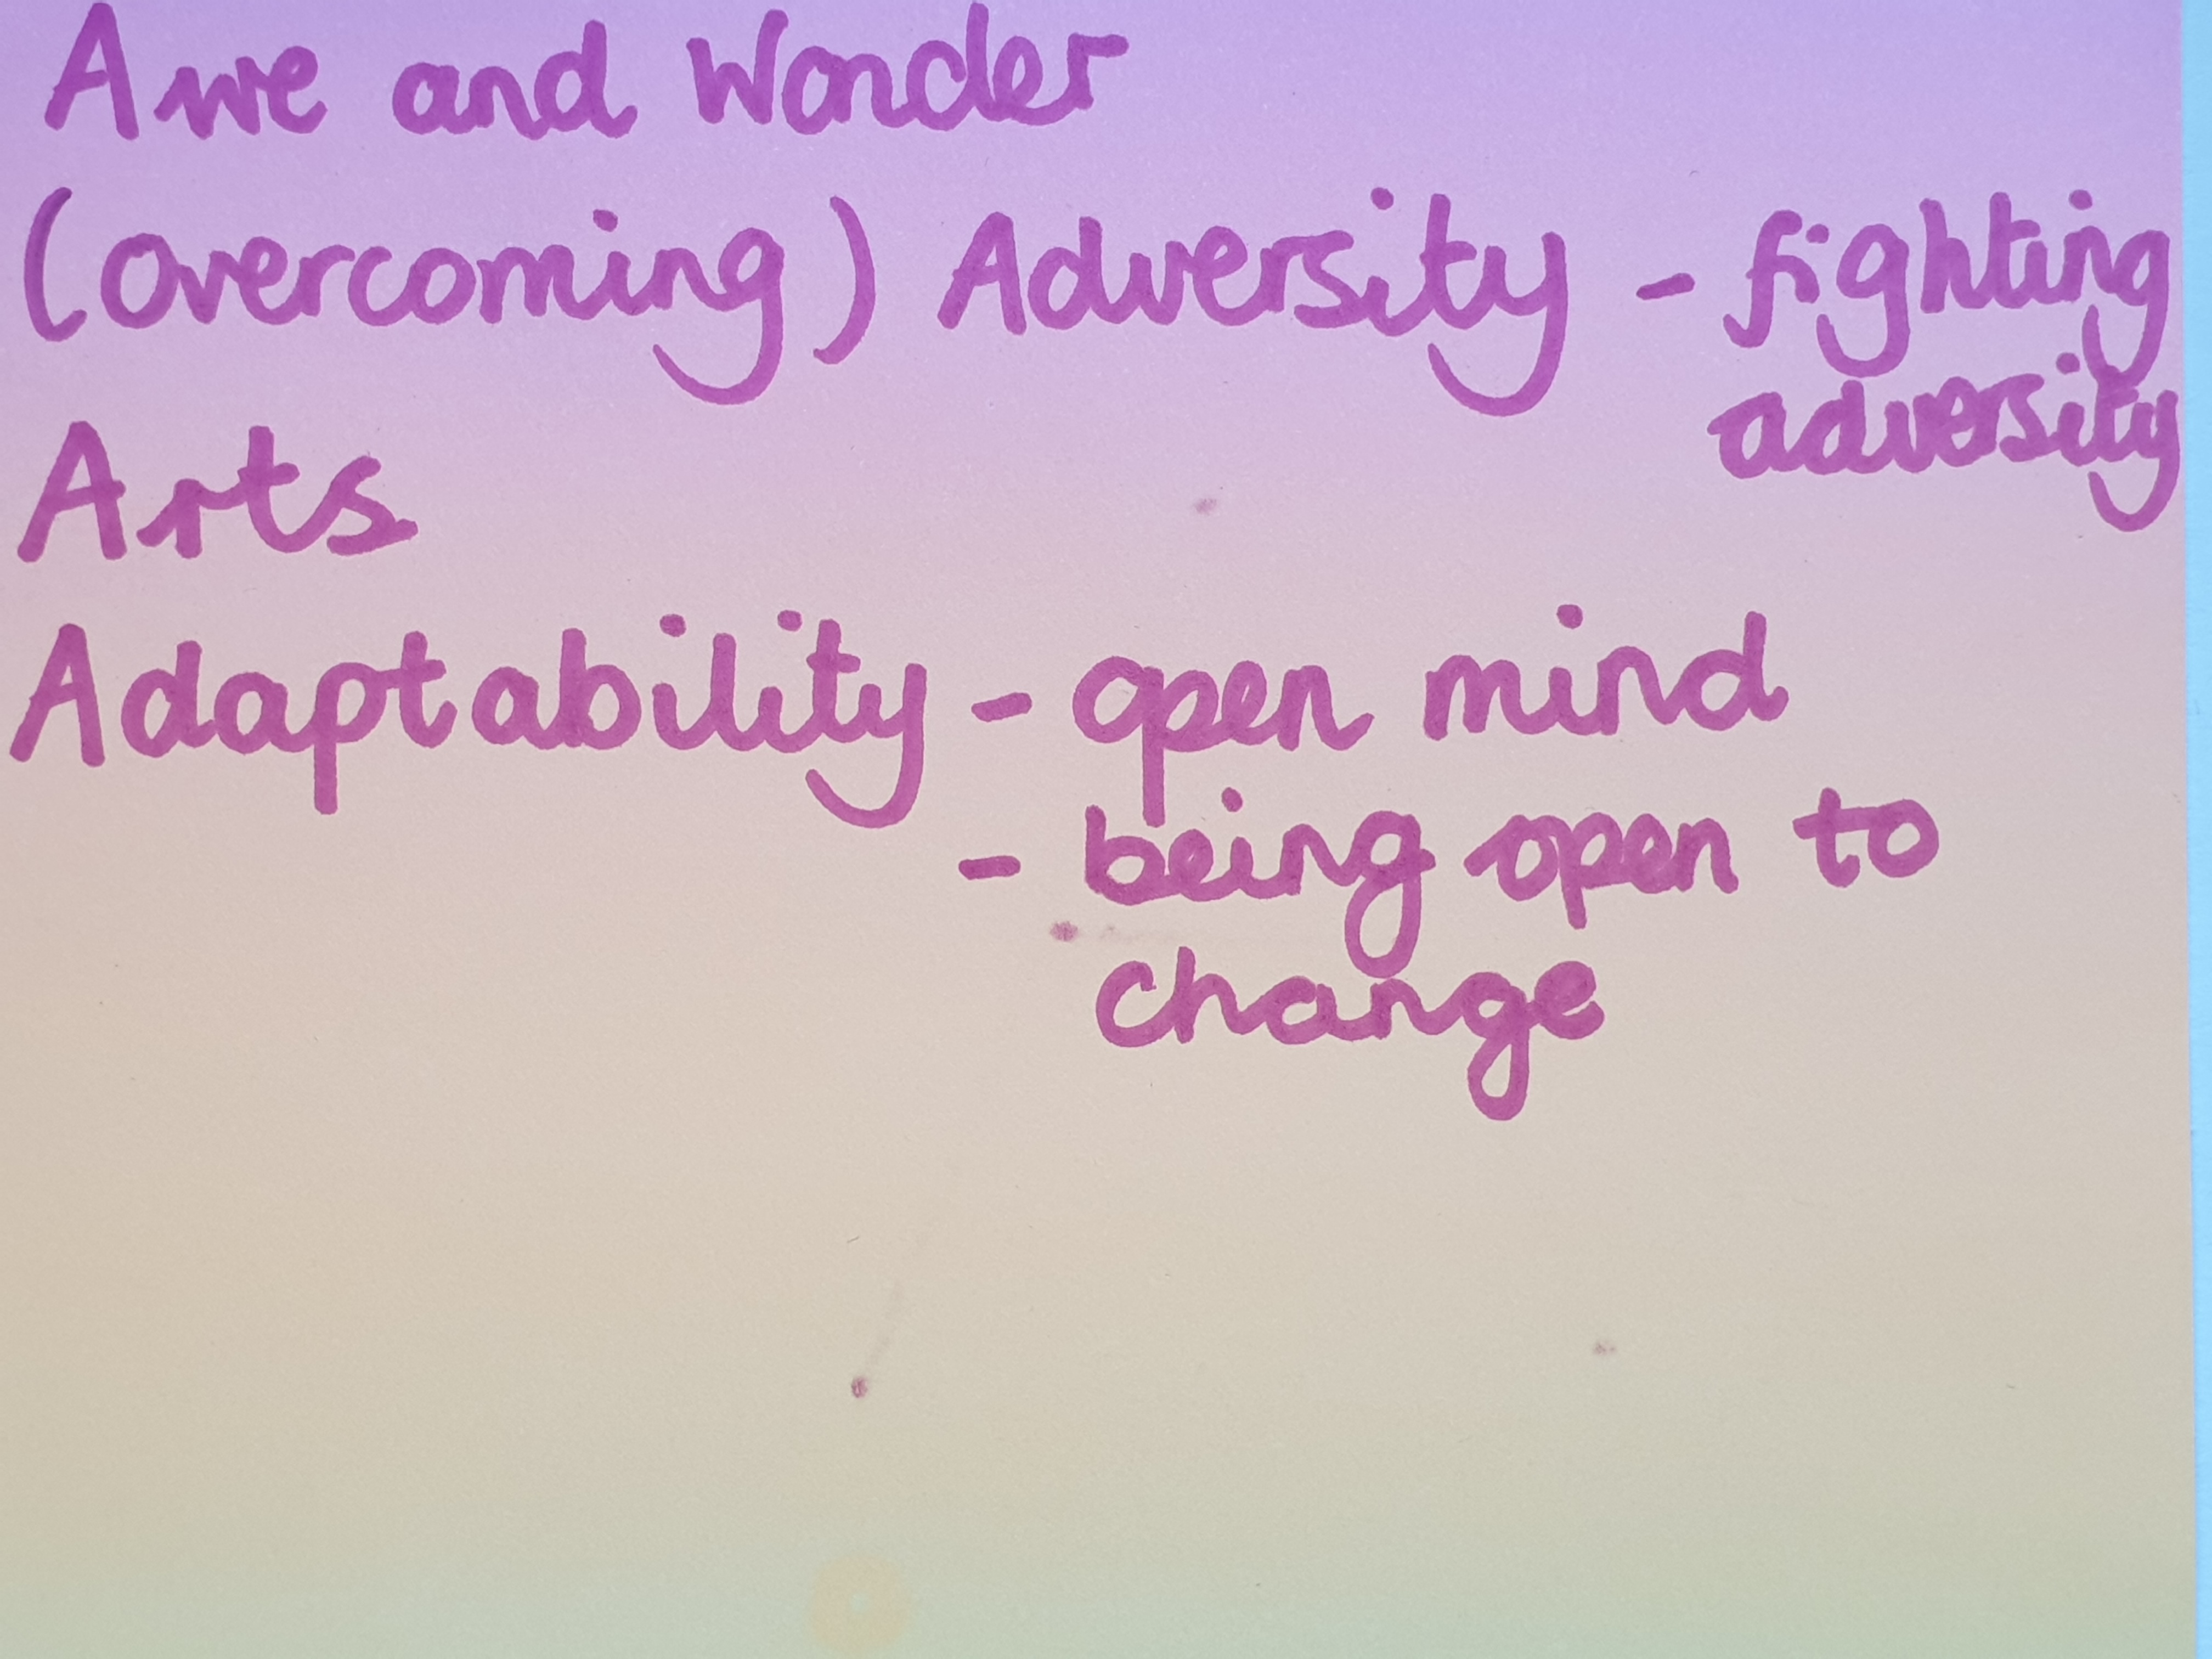 Awe and Wonder
(overcoming) Adversity - fighting
adversity
Arts
Adaptability - open mind
- being open to
change